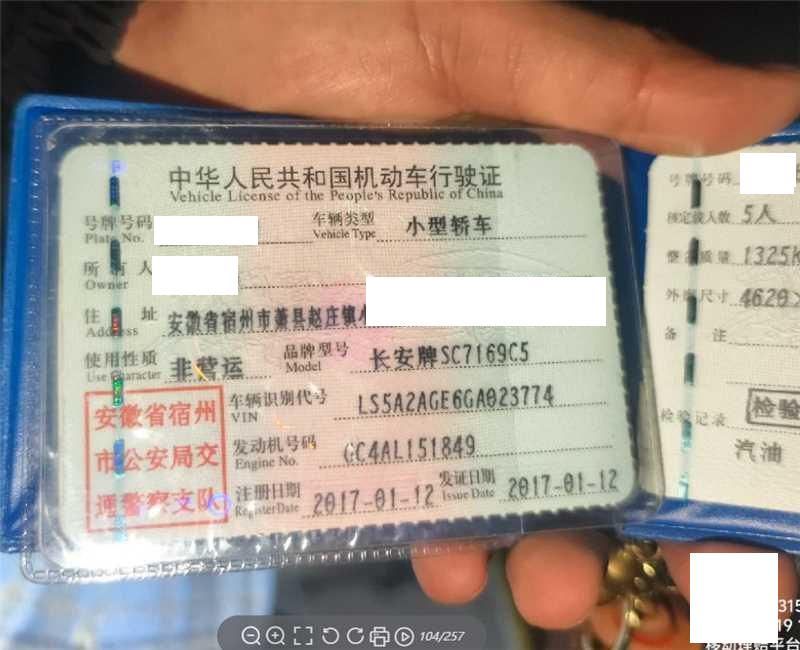 中华人民共和国机动车行驶证
Vehicle License of the People's Republic of China
号牌号码
Plate No.
车辆类型
Vehicle Type
小型轿车
所有人
Owner
住址
Address
安徽省宿州市萧县赵庄镇
使用性质
Use Character
非营运
品牌型号
Model
长安牌SC7169C5
车辆识别代号
VIN
LS5A2AGE6GA023774
发动机号码
Engine No.
GC4AL151849
注册日期
Register Date
2017-01-12
发证日期
Issue Date
2017-01-12
安徽省宿州
市公安局交
通警察支队
号牌号码
核定载人数 5人
整备质量 1325k
外廓尺寸 4620×
备注
检验记录
检验
汽油
104/257
315
19 1
移动理赔平台